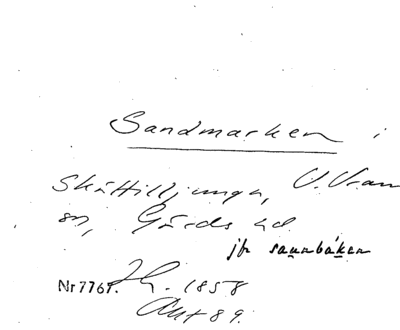 Sandmarken i
Skättilljunga, V. Vram
sn, Gärds hd.
jfr saunbáken
Nr 7761. 1858
Akt 89.